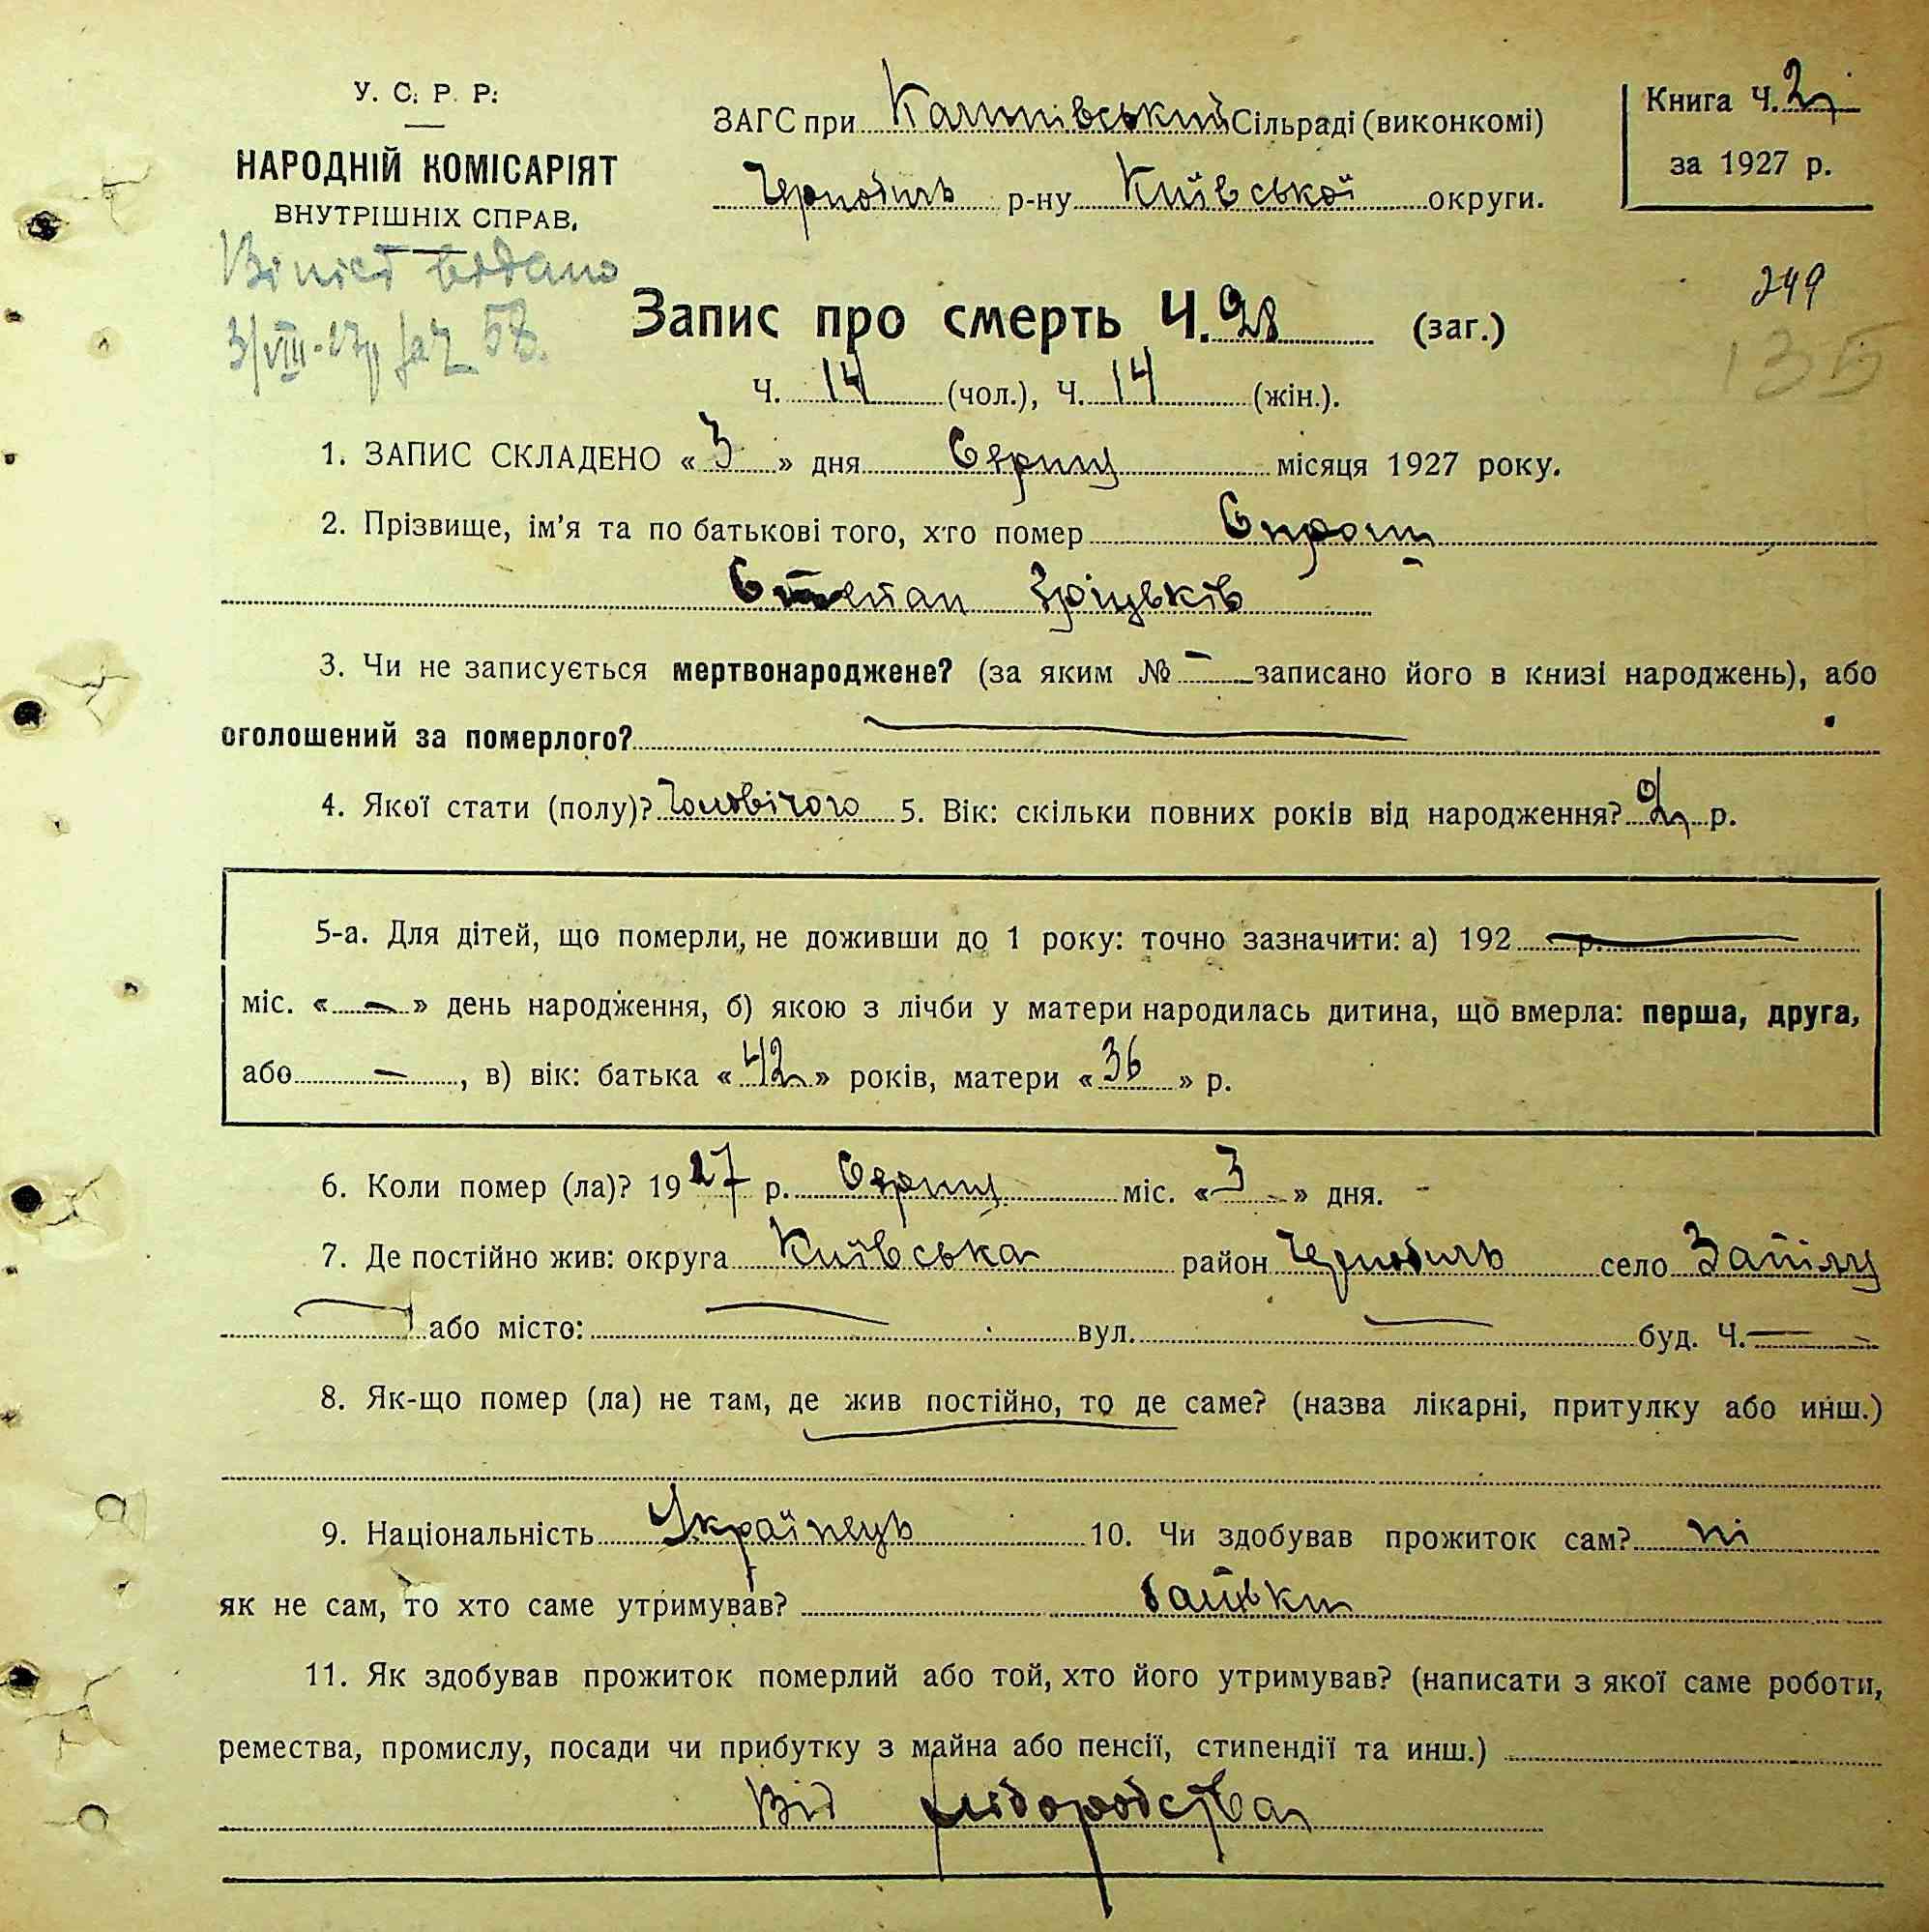 У. С. Р. Р.
НАРОДНІЙ КОМІСАРІЯТ
ВНУТРІШНІХ СПРАВ.
ЗАГС при Сільраді (виконкомі)
Чернобиль р-ну Київської округи.
Книга Ч. 2
за 1927 р.
видано
3/VIII-27р 58.
249
135
Запис про смерть Ч. 28 (заг.)
Ч. 14 (чол.), Ч. 14 (жін.).
1. ЗАПИС СКЛАДЕНО « 3 » дня Серпня місяця 1927 року.
2. Прізвище, ім'я та по батькові того, хто помер
Степан Гріцьків
3. Чи не записується мертвонароджене? (за яким № — записано його в книзі народжень), або
оголошений за померлого? —
4. Якої стати (полу)? Чоловічого 5. Вік: скільки повних років від народження? 2 р.
5-а. Для дітей, що померли, не доживши до 1 року: точно зазначити: а) 192 — р.
міс. « — » день народження, б) якою з лічби у матери народилась дитина, що вмерла: перша, друга,
або — , в) вік: батька « 42 » років, матери « 36 » р.
6. Коли помер (ла)? 1927 р. Серпня міс. « 3 » дня.
7. Де постійно жив: округа Київська район Чернобиль село
— або місто: — вул. — буд. Ч. —
8. Як-що помер (ла) не там, де жив постійно, то де саме? (назва лікарні, притулку або инш.)
9. Національність Українець 10. Чи здобував прожиток сам? ні
як не сам, то хто саме утримував? батьки
11. Як здобував прожиток померлий або той, хто його утримував? (написати з якої саме роботи,
ремества, промислу, посади чи прибутку з майна або пенсії, стипендії та инш.)
Від хліборобства